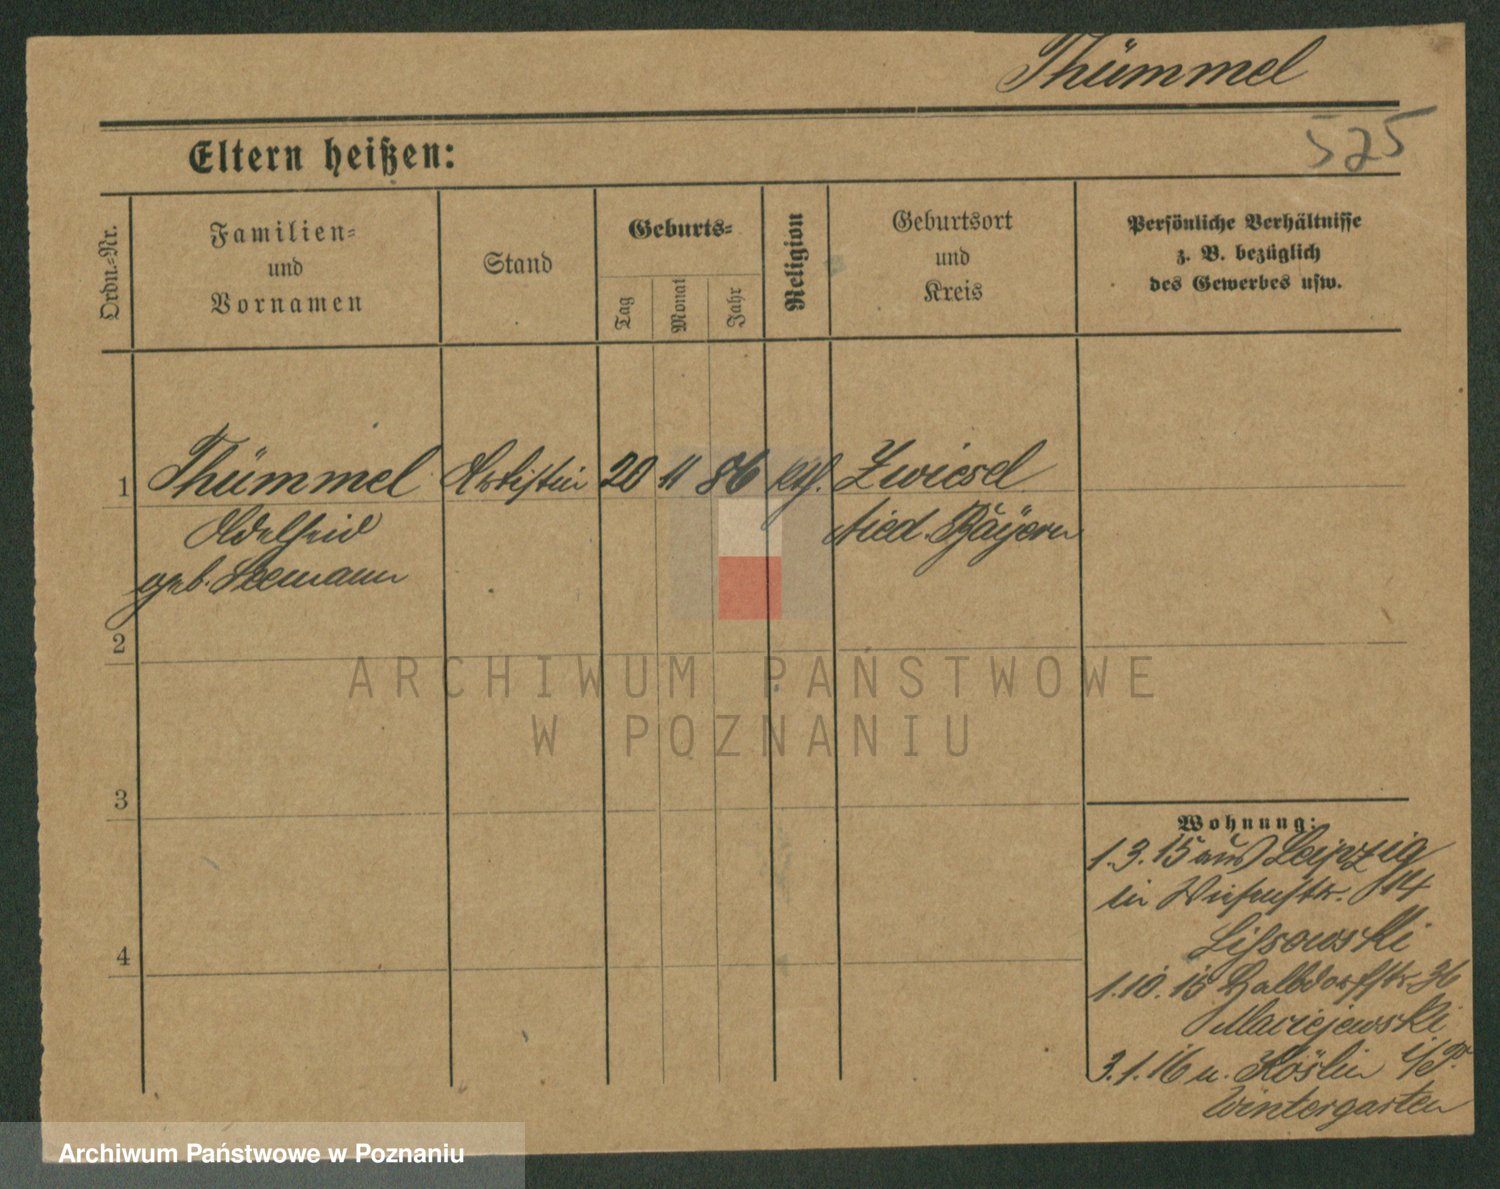 Thümmel
525
Eltern heißen:
Ordn.-Nr.
Familien-
und
Vornamen
Stand
Geburts-
Tag
Monat
Jahr
Religion
Geburtsort
und
Kreis
Persönliche Verhältnisse
z. B. bezüglich
des Gewerbes usw.
1 Thümmel Artistin 20 11 86 kth. Zwiesel
Adelheid Nied. Bayern
geb. Seemann
2
3
4
Wohnung:
1.3.15 aus Leipzig
in Wiesenstr. 14
Lissowski
1.10.15 Halbdorfstr. 36
Maciejewski
3.1.16 n. Köslin i/P.
Wintergarten
ARCHIWUM PAŃSTWOWE
W POZNANIU
Archiwum Państwowe w Poznaniu